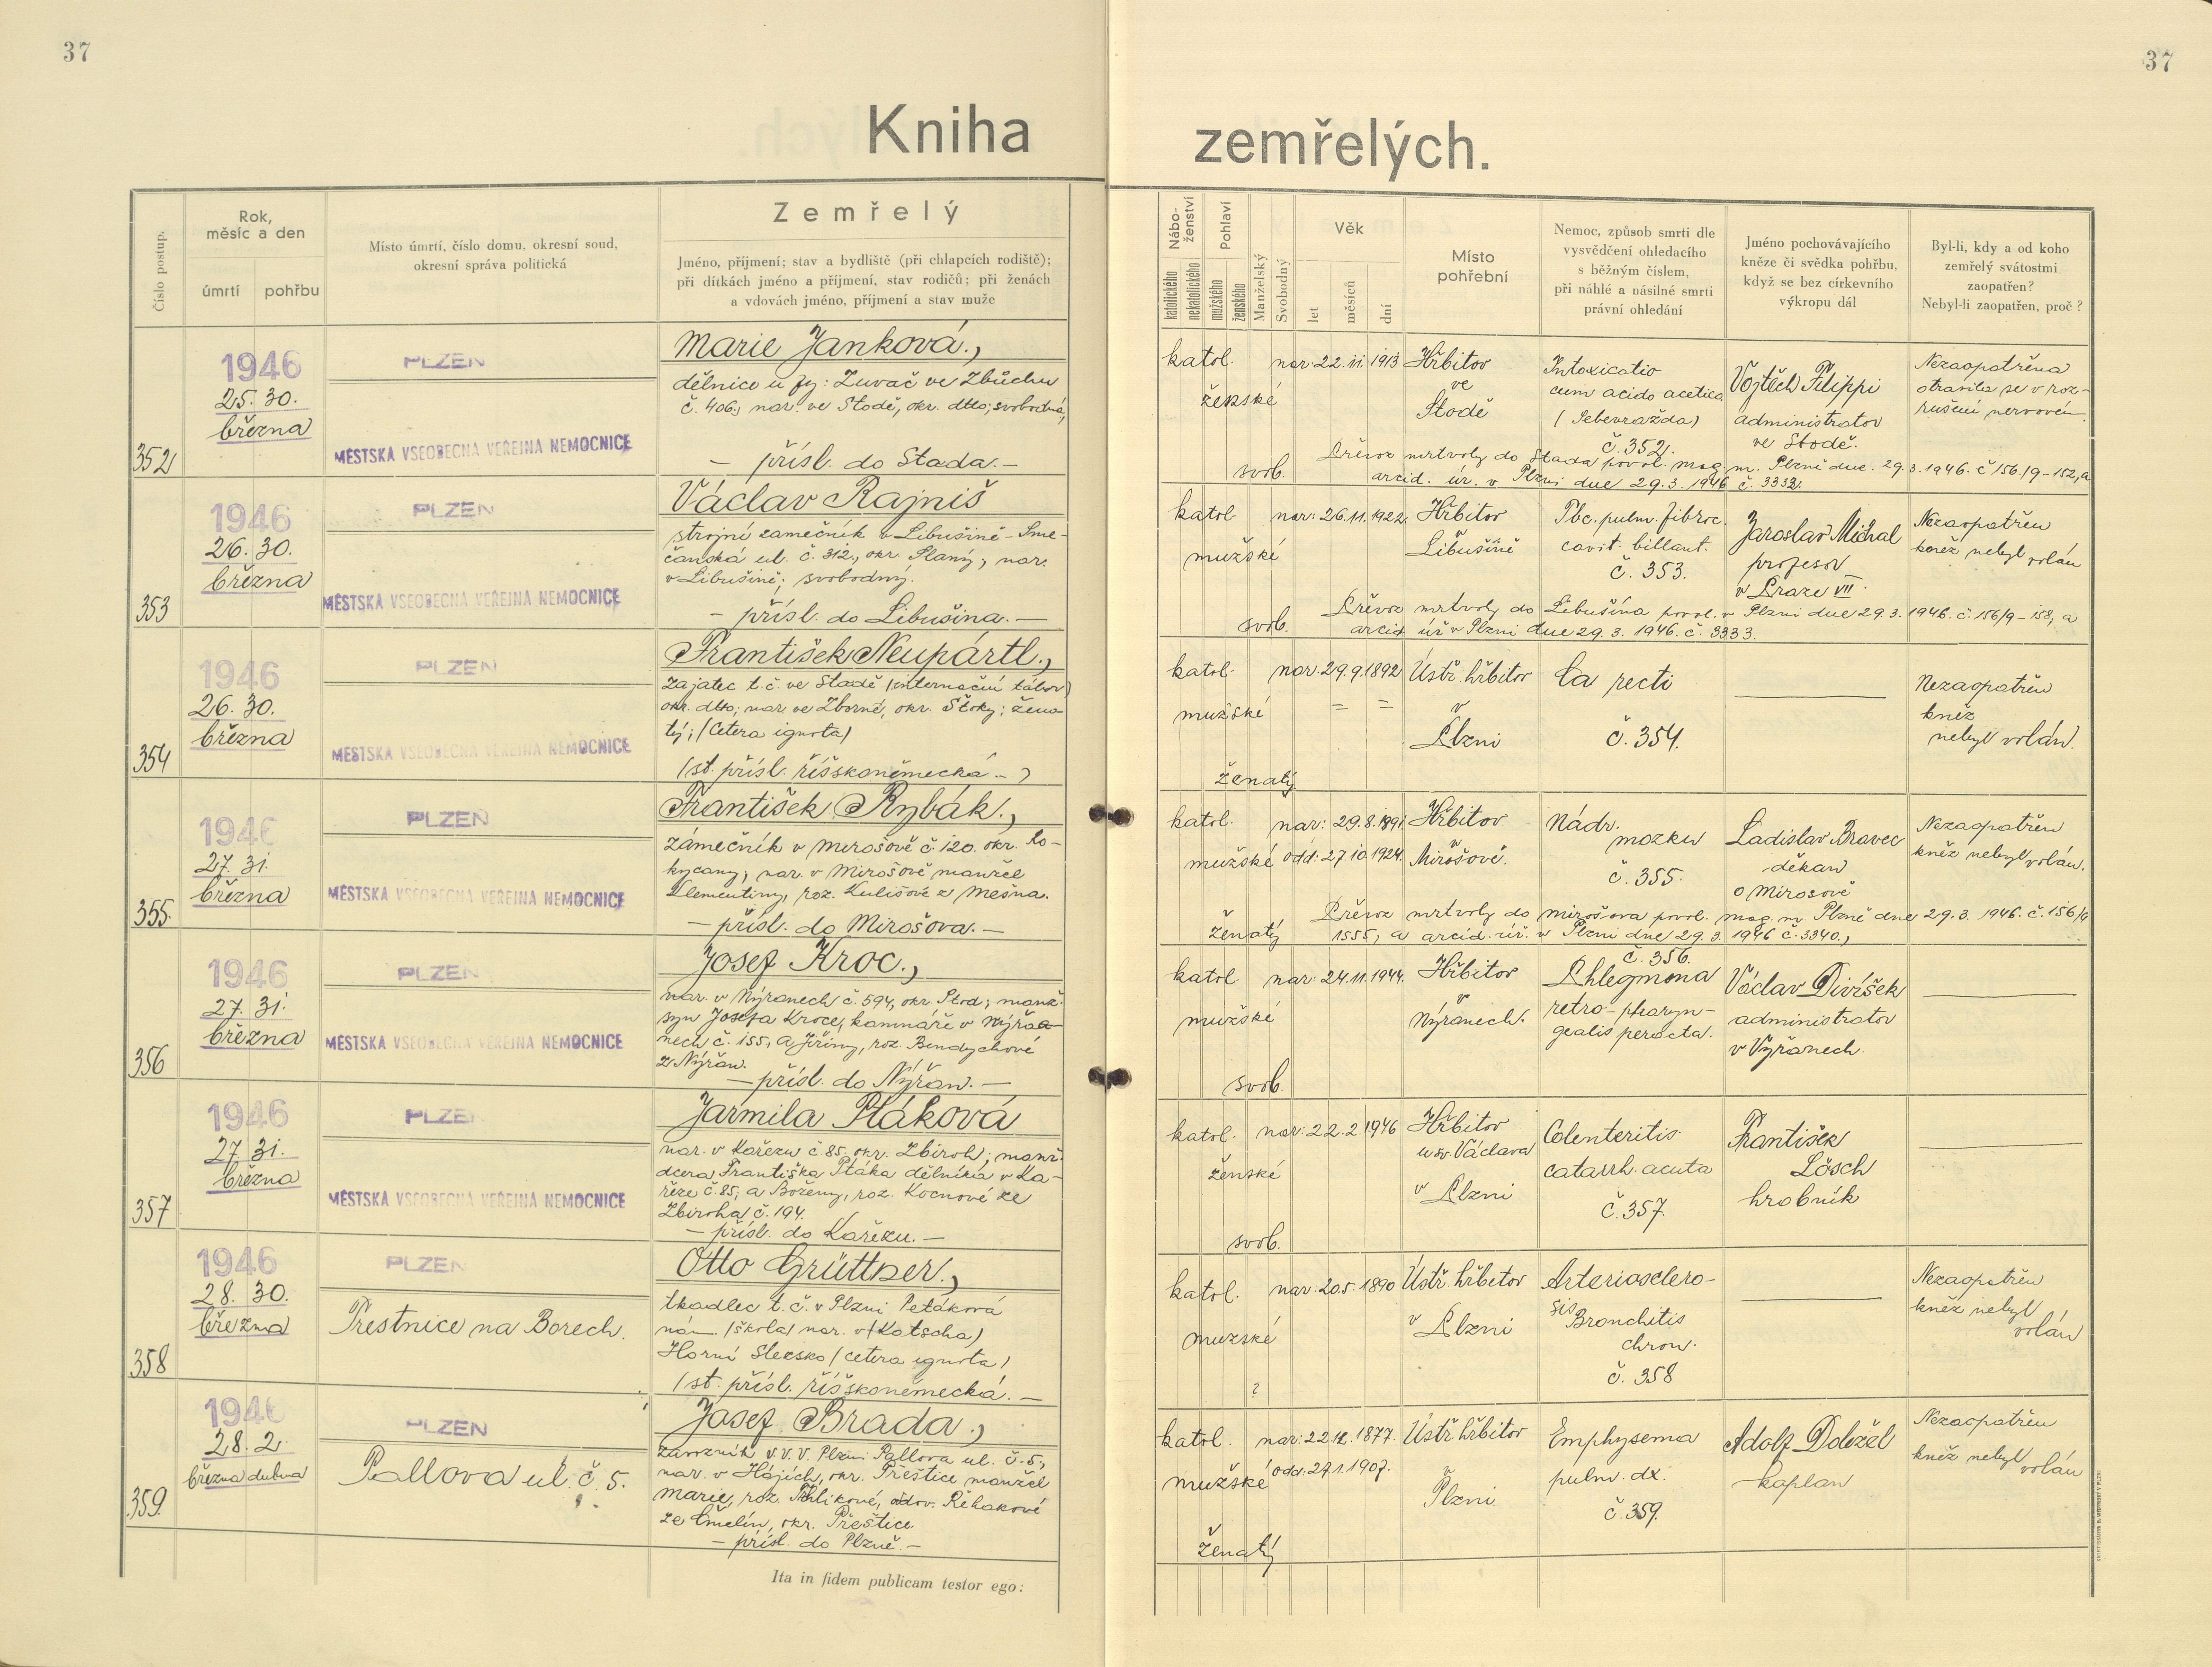 37
37
Kniha
zemřelých.
Číslo postup.
Rok,
měsíc a den
úmrtí
pohřbu
Místo úmrtí, číslo domu, okresní soud,
okresní správa politická
Zemřelý
Jméno, příjmení; stav a bydliště (při chlapcích rodiště);
při dítkách jméno a příjmení, stav rodičů; při ženách
a vdovách jméno, příjmení a stav muže
Nábo-
ženství
katolického
nekatolického
Pohlaví
mužského
ženského
Manželský
Svobodný
Věk
let
měsíců
dní
Místo
pohřební
Nemoc, způsob smrti dle
vysvědčení ohledacího
s běžným číslem,
při náhlé a násilné smrti
právní ohledání
Jméno pochovávajícího
kněze či svědka pohřbu,
když se bez církevního
výkropu dál
Byl-li, kdy a od koho
zemřelý svátostmi
zaopatřen?
Nebyl-li zaopatřen, proč?
352
1946
25. 30.
března
PLZEŇ
MĚSTSKÁ VŠEOBECNÁ VEŘEJNÁ NEMOCNICE
Marie Janková.,
dělnice u fy: Zuvač ve Zbůchu
č. 406., nar. ve Stodě, okr. dtto; svobodná,
— přísl. do Stoda. —
katol.
ženské
svob.
nar. 22. 11. 1913
Hřbitov
ve
Stodě
Intoxicatio
cum acido acetico
(Sebevražda)
č. 352.
Vojtěch Filippi
administrator
ve Stodě.
Nezaopatřena
otrávila se v roz-
rušení nervovém.
Převoz mrtvoly do Stoda povol. mag. m. Plzně dne 29. 3. 1946. č 156/9-152, a
arcid. úř. v Plzni dne 29. 3. 1946 č. 3332.
353
1946
26. 30.
března
PLZEŇ
MĚSTSKÁ VŠEOBECNÁ VEŘEJNÁ NEMOCNICE
Václav Rajniš
strojní zámečník v Libušíně - Sme-
čanská ul. č. 312., okr. Slaný, nar.
v Libušíně; svobodný.
— přísl. do Libušína. —
katol.
mužské
svob.
nar: 26. 11. 1922.
Hřbitov
Libušíně
Tbc. pulm. fibroc.
cavit. billaut.
č. 353.
Jaroslav Michal
profesor
v Praze VII.
Nezaopatřen
kněz nebyl volán
Převoz mrtvoly do Libušína povol. v Plzni dne 29. 3. 1946. č. 156/9-158, a
arcid. úř v Plzni dne 29. 3. 1946. č. 3333.
354
1946
26. 30.
března
PLZEŇ
MĚSTSKÁ VŠEOBECNÁ VEŘEJNÁ NEMOCNICE
František Neupärtl.,
zajatec t. č. ve Stodě (internační tábor)
okr. dtto; nar. ve Zborné, okr. Štoky; žena-
tý; (Cetera ignota)
(st. přísl. říšskoněmecká. -)
katol.
mužské
ženatý
nar. 29. 9. 1892
= =
Ústř. hřbitov
v
Plzni
Ca recti
č. 354.
Nezaopatřen
kněz
nebyl volán.
355.
1946
27. 31.
března
PLZEŇ
MĚSTSKÁ VŠEOBECNÁ VEŘEJNÁ NEMOCNICE
František Rybák.,
zámečník v Mirošově č. 120. okr. Ro-
kycany, nar. v Mirošově manžel
Klementiny, roz. Kulišové z Mešna.
— přísl. do Mirošova. —
katol.
mužské
ženatý
nar: 29. 8. 1891.
odd: 27. 10. 1924.
Hřbitov
v
Mirošově.
Nádr.
mozku
č. 355.
Ladislav Bravec
děkan
v Mirosově
Nezaopatřen
kněz nebyl volán.
Převoz mrtvoly do Mirošova povol. mag. m. Plzně dne 29. 3. 1946. č. 156/9
1555, a arcid. úř. v Plzni dne 29. 3. 1946 č. 3340.,
356
1946
27. 31.
března
PLZEŇ
MĚSTSKÁ VŠEOBECNÁ VEŘEJNÁ NEMOCNICE
Josef Kroc.,
nar. v Nýřanech č. 594, okr. Stod; manž.
syn Josefa Kroce, kamnáře v Nýřa-
nech č. 155, a Jiřiny, roz. Bendychové
z Nýřan.
— přísl. do Nýřan. —
katol.
mužské
svob.
nar: 24. 11. 1944.
Hřbitov
v
Nýřanech.
č. 356.
Phlegmona
retro-pharyn-
gealis peracta.
Václav Divíšek
administrator
v Nýřanech.
357
1946
27. 31.
března
PLZEŇ
MĚSTSKÁ VŠEOBECNÁ VEŘEJNÁ NEMOCNICE
Jarmila Ptáková
nar. v Kařezu č 85. okr. Zbiroh; manž.
dcera Františka Ptáka dělníka v Ka-
řeze č. 85, a Boženy, roz. Kocnové ze
Zbiroha č. 194.
— přísl. do Kařezu. —
katol.
ženské
svob.
nar: 22. 2. 1946
Hřbitov
u sv. Václava
v Plzni
Colenteritis
catarrh. acuta
č. 357.
František
Lösch
hrobník
358
1946
28. 30.
března
PLZEŇ
Trestnice na Borech.
Otto Grüttner.,
tkadlec t. č. v Plzni Petáková
nám. (škola) nar. v (Kotscha)
Horní Slezsko (cetera ignota)
(st. přísl. říšskoněmecká. —
katol.
mužské
?
nar: 20. 5. 1890
Ústř. hřbitov
v Plzni
Arteriosclero-
sis
Bronchitis
chron.
č. 358
Nezaopatřen
kněz nebyl
volán
359.
1946
28. 2.
března dubna
PLZEŇ
Pallova ul. č. 5.
Josef Brada.,
v.v.v. Plzni Pallova ul. č. 5,
nar. v Hájích, okr. Přeštice manžel
Marie, roz. , vdov. Řehákové
ze , okr. Přeštice.
— přísl. do Plzně. —
katol.
mužské
ženatý
nar: 22. 12. 1877.
odd: 27. 1. 1907.
Ústř. hřbitov
v
Plzni
Emphysema
pulm. dx.
č. 359.
Adolf Doležel
kaplan
Nezaopatřen
kněz nebyl volán
Ita in fidem publicam testor ego: